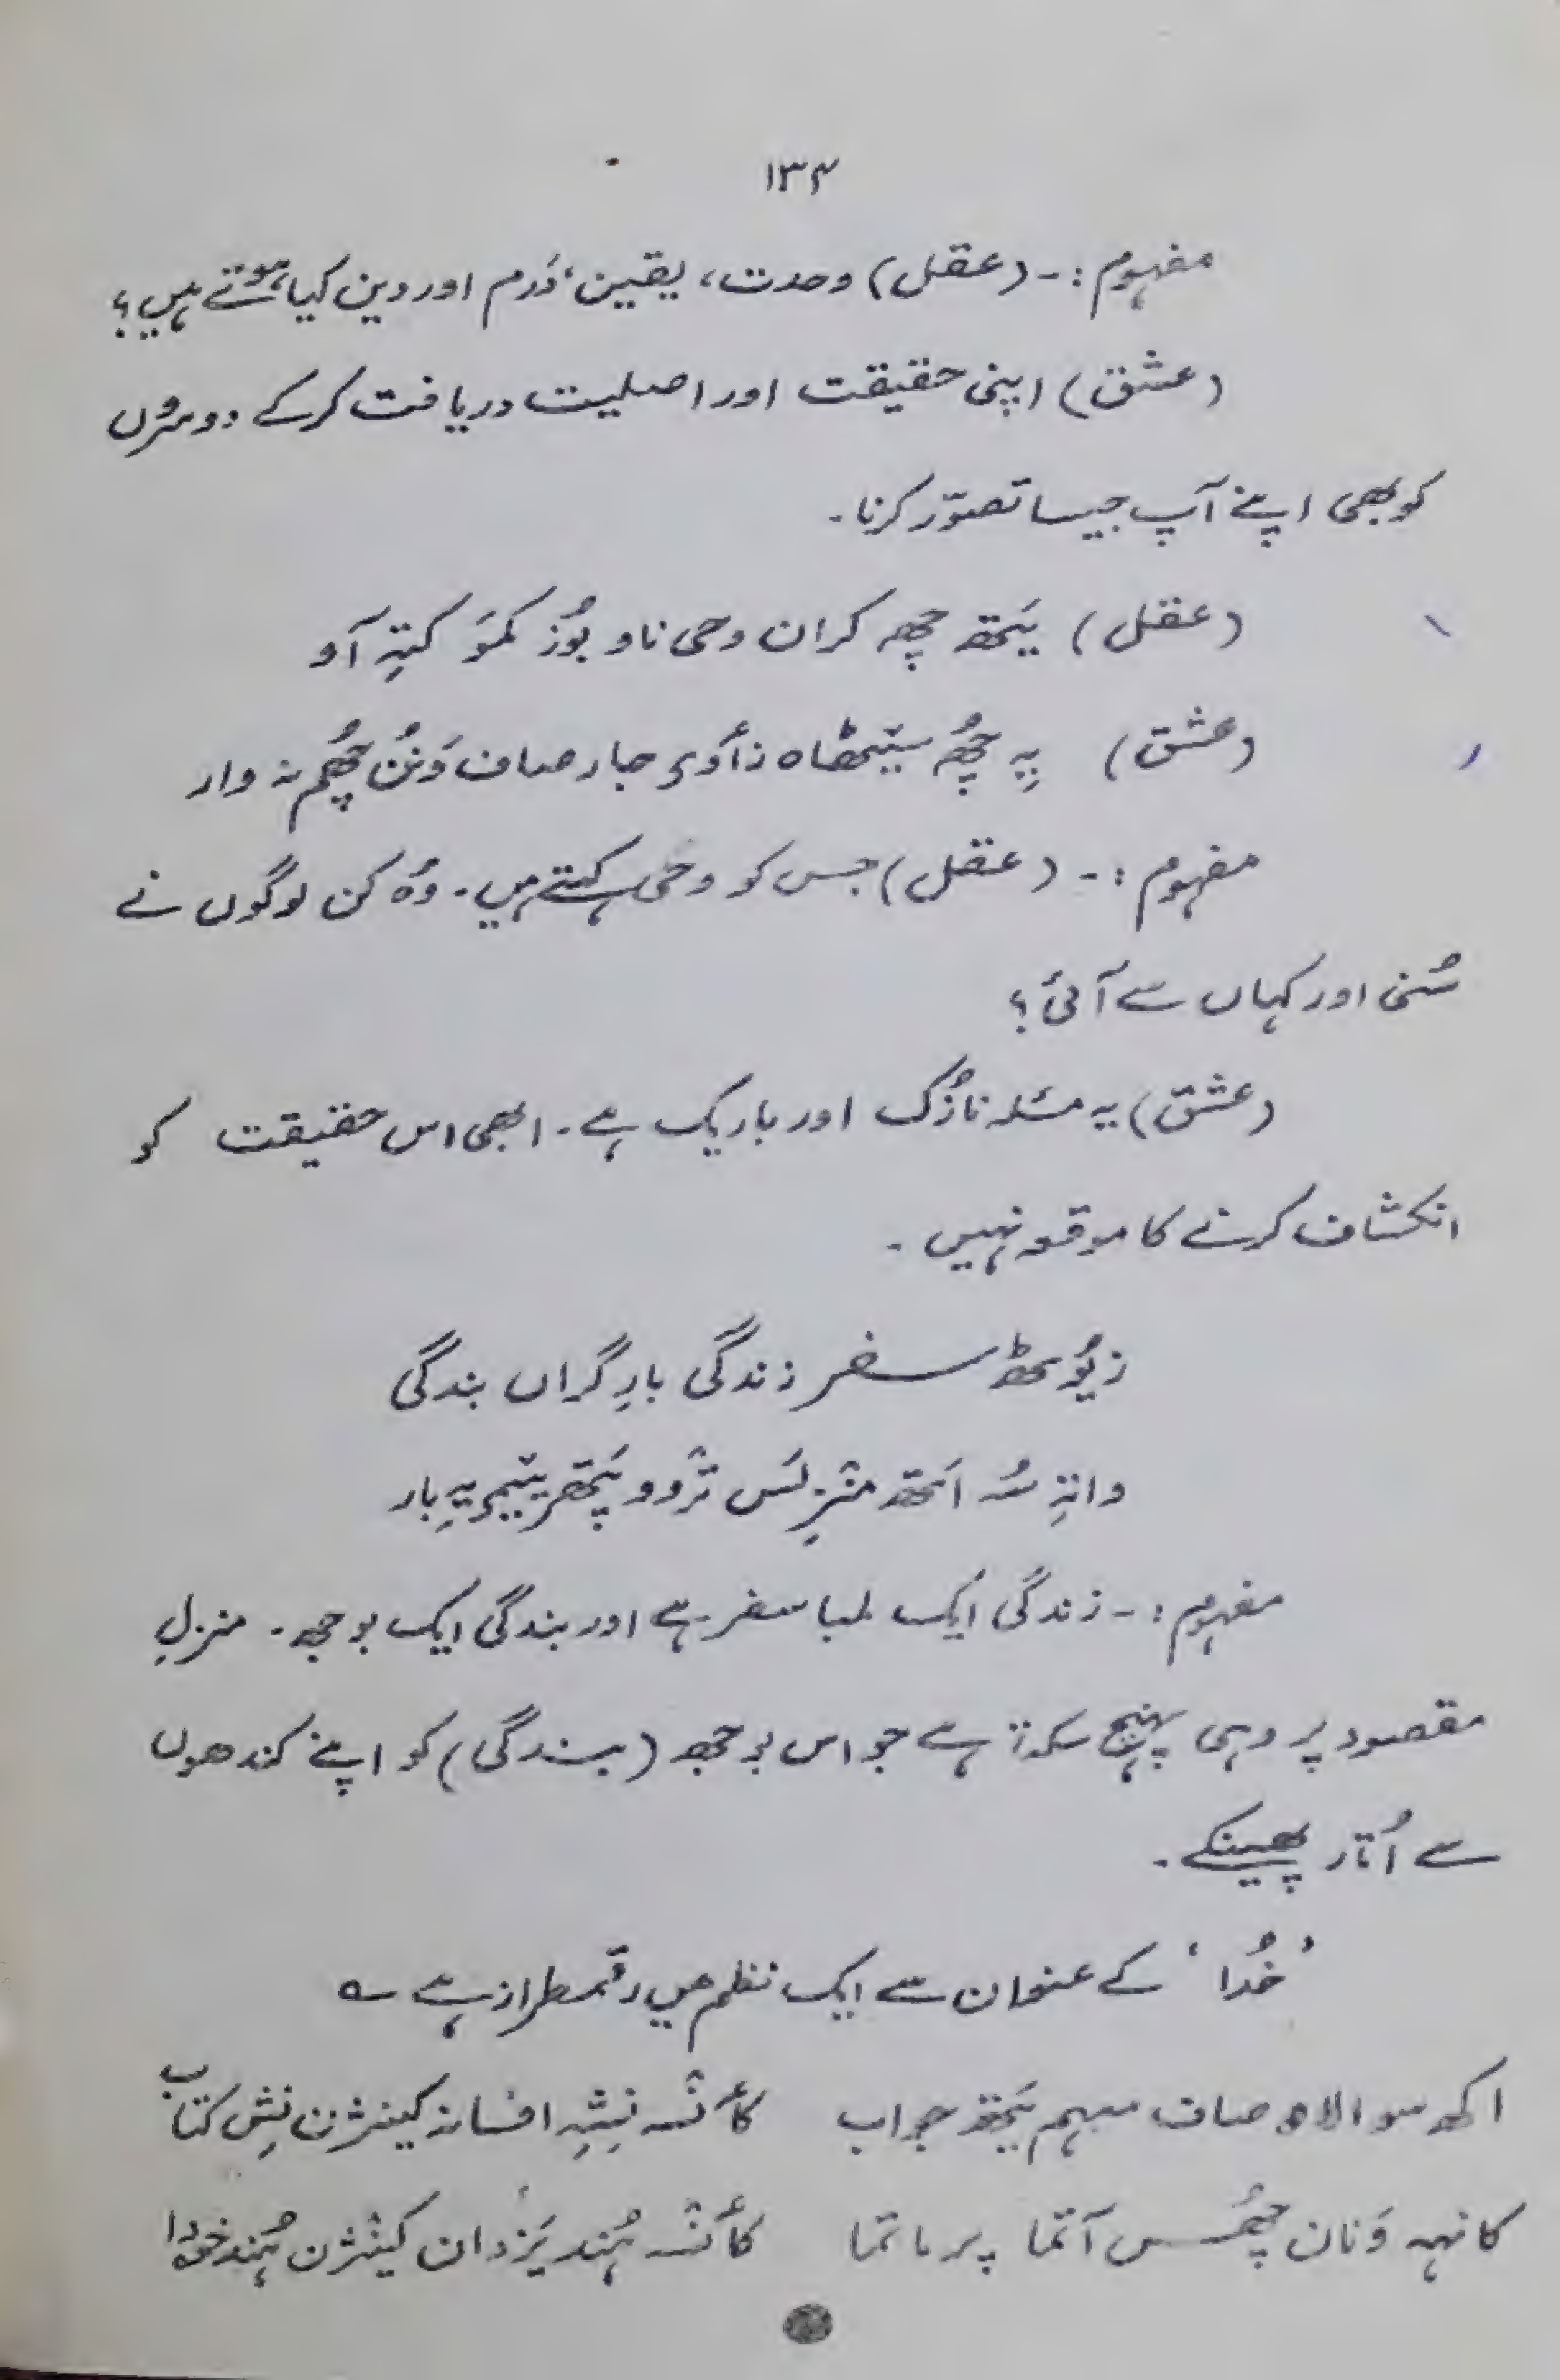 ۱۳۴
مفہوم :- (عقل) وحدت، یقین، دَرم اور دین کیا ہوتے ہیں؟
(عشق) اپنی حقیقت اور اصلیت دریافت کرکے دوسروں
کو بھی اپنے آپ جیسا تصوّر کرنا۔
(عقل) یَتھ چھِ کران وحی ناو بوٗز کمَو کتہِ آو
(عشق) یہِ چھُ سیٹھاہ نأزک جار صاف وَنُن چھُم نہ وار
مفہوم :- (عقل) جس کو وحی کہتے ہیں۔ وُہ کن لوگوں نے
سُنی اور کہاں سے آئی؟
(عشق) یہ مسئلہ نازُک اور باریک ہے۔ ابھی اس حقیقت کو
انکشاف کرنے کا موقعہ نہیں۔
زیوٗٹھ سفر زندگی بارِ گراں بندگی
واتہِ سُہ اَتھ منزِلَس ترٛوو یَتھر ییٚمۍ یہِ بار
مفہوم :- زندگی ایک لمبا سفر ہے اور بندگی ایک بوجھ۔ منزلِ
مقصود پر وہی پہنچ سکتا ہے جو اس بوجھ (بندگی) کو اپنے کندھوں
سے اُتار پھینکے۔
’خُدا‘ کے عنوان سے ایک نظم میں رقمطراز ہے ؎
اکھ سوالاہ صاف مبہم یَتھ جواب کأنٛسہ نِشہِ افسانہ کینٛژن نِش کتاب
کانہہ وَنان چھُس آتما پرماتما کأنٛسہ ہُند یَزدان کینٛژن ہُند خودا